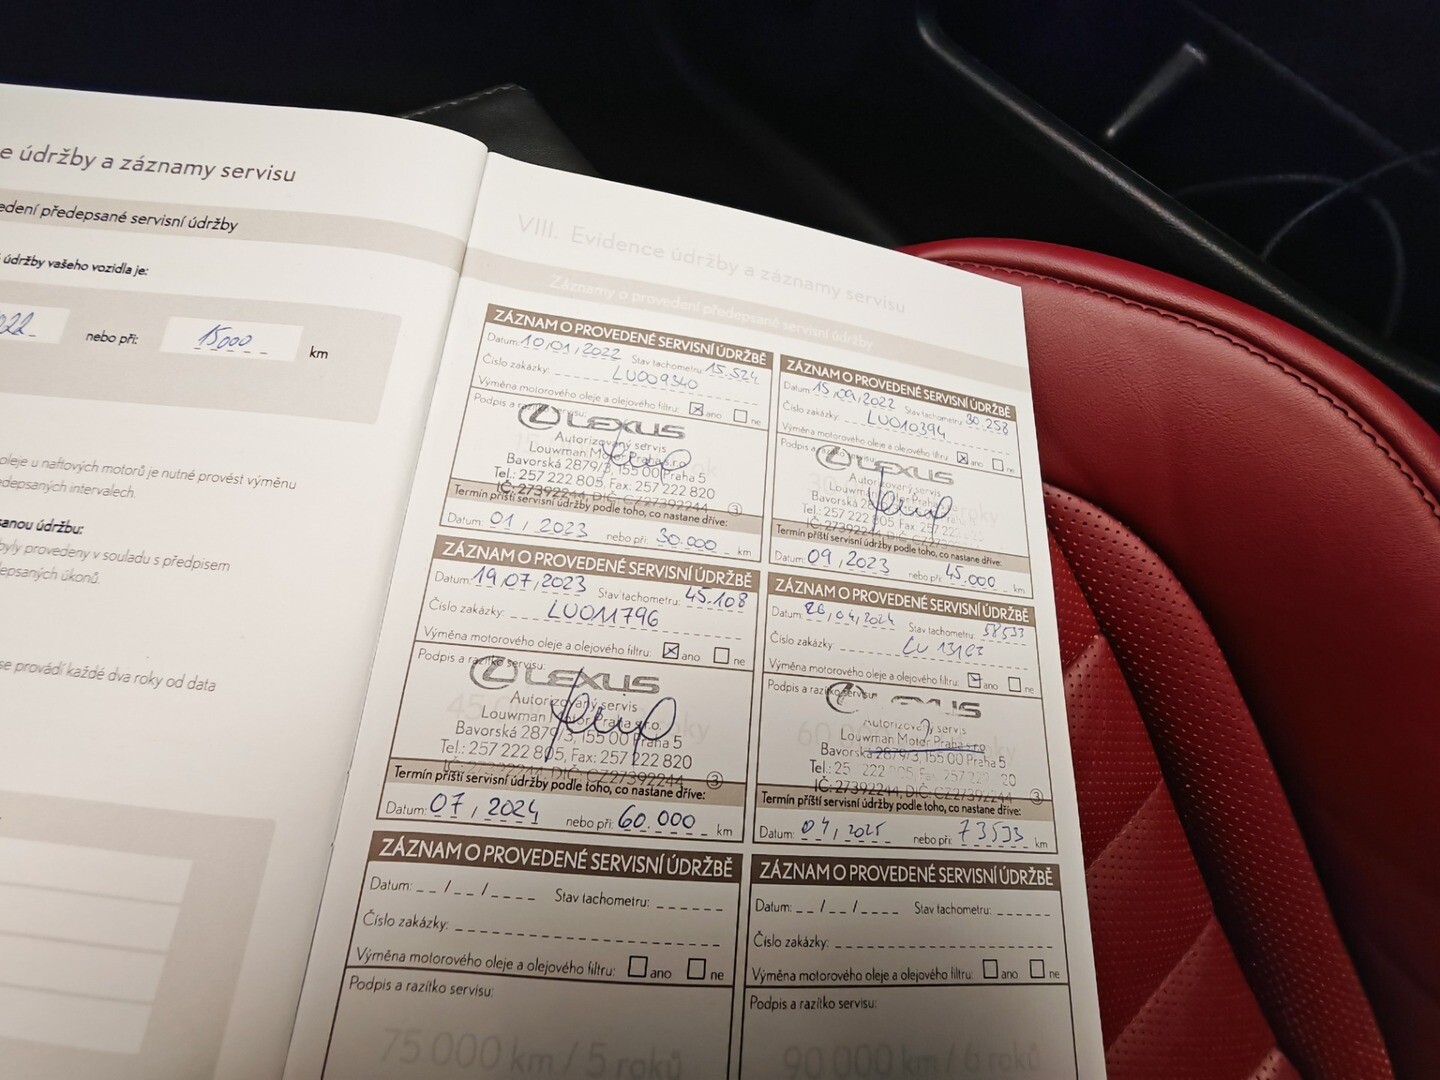 e údržby a záznamy servisu
edení předepsané servisní údržby
údržby vašeho vozidla je:
nebo při: 15000 km
oleje u naftových motorů je nutné provést výměnu
depsaných intervalech.
sanou údržbu:
byly provedeny v souladu s předpisem
lepsaných úkonů.
se provádí každé dva roky od data
VIII. Evidence údržby a záznamy servisu
Záznamy o provedení předepsané servisní údržby
ZÁZNAM O PROVEDENÉ SERVISNÍ ÚDRŽBĚ
Datum: 10/01/2022 Stav tachometru: 15.524
Číslo zakázky: LU009340
Výměna motorového oleje a olejového filtru: ano ne
Podpis a razítko servisu:
LEXUS
Autorizovaný servis
Louwman Motor Praha s.r.o.
Bavorská 2879/3, 155 00 Praha 5
Tel.: 257 222 805, Fax: 257 222 820
IČ: 27392244, DIČ: CZ27392244 3
Termín příští servisní údržby podle toho, co nastane dříve:
Datum: 01/2023 nebo při: 30.000 km
ZÁZNAM O PROVEDENÉ SERVISNÍ ÚDRŽBĚ
Datum: 15/09/2022 Stav tachometru: 30.258
Číslo zakázky: LU010394
Výměna motorového oleje a olejového filtru: ano ne
Podpis a razítko servisu:
LEXUS
Autorizovaný servis
Louwman Motor Praha s.r.o.
Bavorská 2879/3, 155 00 Praha 5
Tel.: 257 222 805, Fax: 257 222
IČ: 27392244, DIČ: CZ27392244
Termín příští servisní údržby podle toho, co nastane dříve:
Datum: 09/2023 nebo při: 45.000 km
ZÁZNAM O PROVEDENÉ SERVISNÍ ÚDRŽBĚ
Datum: 19/07/2023 Stav tachometru: 45.108
Číslo zakázky: LU011796
Výměna motorového oleje a olejového filtru: ano ne
Podpis a razítko servisu:
LEXUS
Autorizovaný servis
Louwman Motor Praha s.r.o.
Bavorská 2879/3, 155 00 Praha 5
Tel.: 257 222 805, Fax: 257 222 820
IČ: 27392244, DIČ: CZ27392244 3
Termín příští servisní údržby podle toho, co nastane dříve:
Datum: 07/2024 nebo při: 60.000 km
ZÁZNAM O PROVEDENÉ SERVISNÍ ÚDRŽBĚ
Datum: 26/04/2024 Stav tachometru: 58533
Číslo zakázky:
Výměna motorového oleje a olejového filtru: ano ne
Podpis a razítko servisu:
LEXUS
Autorizovaný servis
Louwman Motor Praha s.r.o.
Bavorská 2879/3, 155 00 Praha 5
Tel.: 25 222 05, Fax: 257 22 20
IČ: 27392244, DIČ: CZ27392244 3
Termín příští servisní údržby podle toho, co nastane dříve:
Datum: 04/2025 nebo při: 73533 km
ZÁZNAM O PROVEDENÉ SERVISNÍ ÚDRŽBĚ
Datum: _ _ / _ _ / _ _ _ _ Stav tachometru: _ _ _ _ _ _
Číslo zakázky:
Výměna motorového oleje a olejového filtru: ano ne
Podpis a razítko servisu:
75 000 km / 5 roků
ZÁZNAM O PROVEDENÉ SERVISNÍ ÚDRŽBĚ
Datum: _ _ / _ _ / _ _ _ _ Stav tachometru: _ _ _ _ _ _
Číslo zakázky:
Výměna motorového oleje a olejového filtru: ano ne
Podpis a razítko servisu:
90 000 km / 6 roků